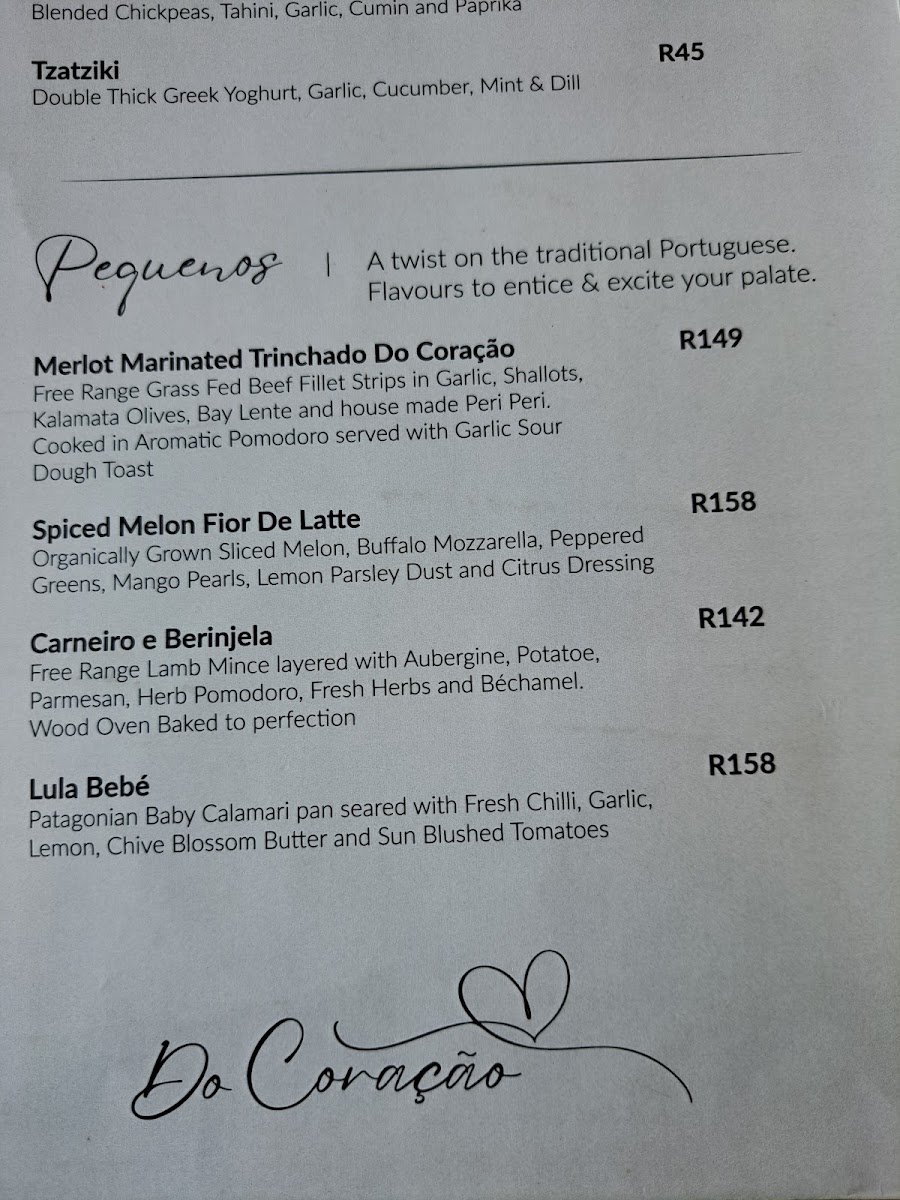 Blended Chickpeas, Tahini, Garlic, Cumin and Paprika
Tzatziki R45
Double Thick Greek Yoghurt, Garlic, Cucumber, Mint & Dill
Pequenos | A twist on the traditional Portuguese.
Flavours to entice & excite your palate.
Merlot Marinated Trinchado Do Coração R149
Free Range Grass Fed Beef Fillet Strips in Garlic, Shallots,
Kalamata Olives, Bay Lente and house made Peri Peri.
Cooked in Aromatic Pomodoro served with Garlic Sour
Dough Toast
Spiced Melon Fior De Latte R158
Organically Grown Sliced Melon, Buffalo Mozzarella, Peppered
Greens, Mango Pearls, Lemon Parsley Dust and Citrus Dressing
Carneiro e Berinjela R142
Free Range Lamb Mince layered with Aubergine, Potatoe,
Parmesan, Herb Pomodoro, Fresh Herbs and Béchamel.
Wood Oven Baked to perfection
Lula Bebé R158
Patagonian Baby Calamari pan seared with Fresh Chilli, Garlic,
Lemon, Chive Blossom Butter and Sun Blushed Tomatoes
Do Coração